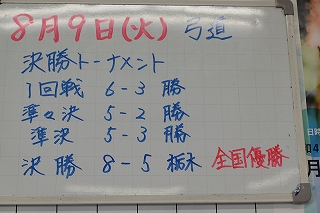 8月9日(火) 弓道
決勝トーナメント
1回戦 6-3 勝
準々決 5-2 勝
準決 5-3 勝
決勝 8-5 栃木 全国優勝